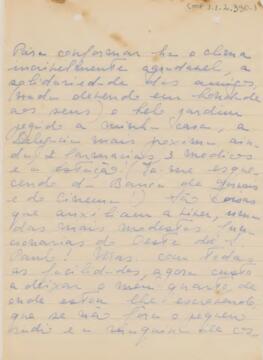 (mf 1.1.2.390-)
Para conformar ha o clima
incrivelmente agradavel, a
solidariedade dos amigos,
(nada devendo em bondade
aos seus) o belo jardim
pegado a minha casa, a
Delegacia mais proxima ain-
da, 2 farmacias, 3 medicos
e a estação (Ia-me esque-
cendo da Banca de Jornais
e do Cinema!) São coisas
que auxiliam a viver, uma
das mais modestas fun-
cionarias do Oeste de S.
Paulo! Mas, com todas
as facilidades, agora custo
a deixar o meu quarto, de
onde estou lhe escrevendo
que se não fora o pequeno
radio e a